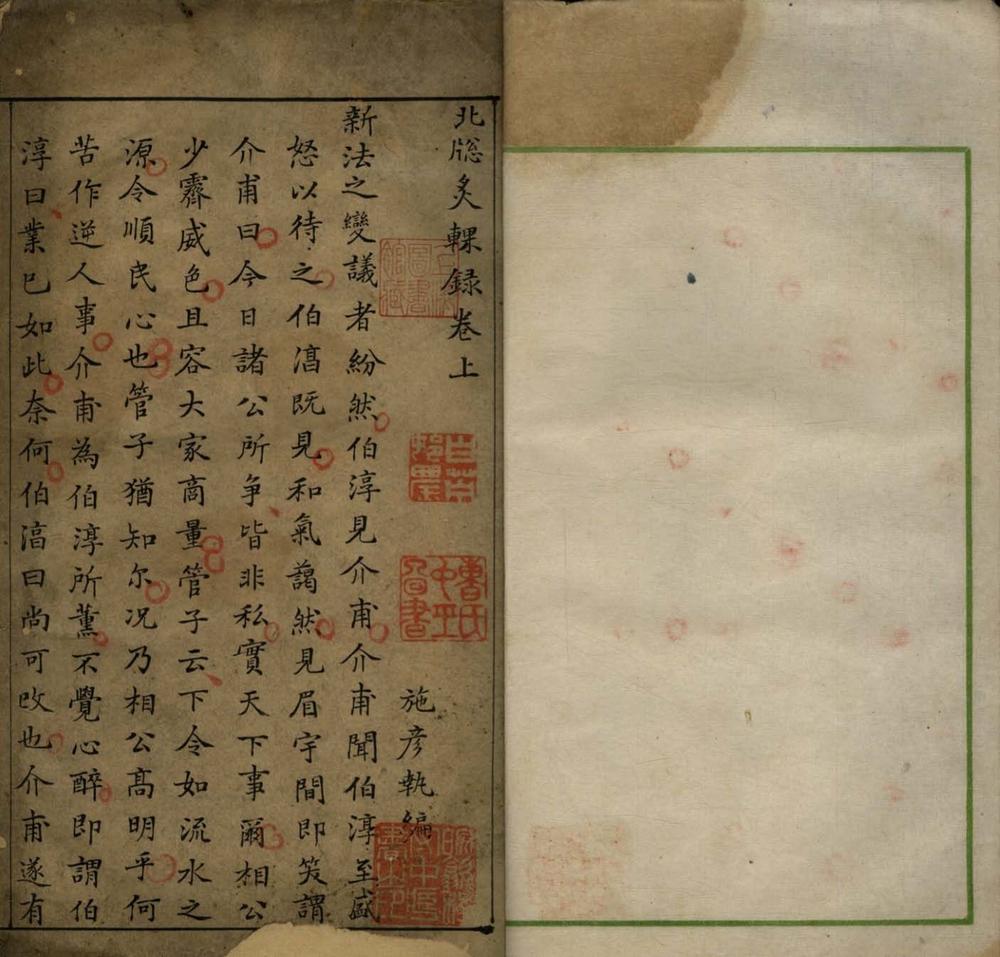 北牕炙輠録卷上
施彥執編
新法之變議者紛然伯淳見介甫介甫聞伯淳至盛
怒以待之伯淳既見和氣藹然見眉宇間即笑謂
介甫曰今日諸公所争皆非私實天下事爾相公
少霽威色且容大家商量管子云下令如流水之
源令順民心也管子猶知尔况乃相公髙明乎何
苦作逆人事介甫為伯淳所薰不覺心醉即謂伯
淳曰業已如此奈何伯淳曰尚可改也介甫遂有